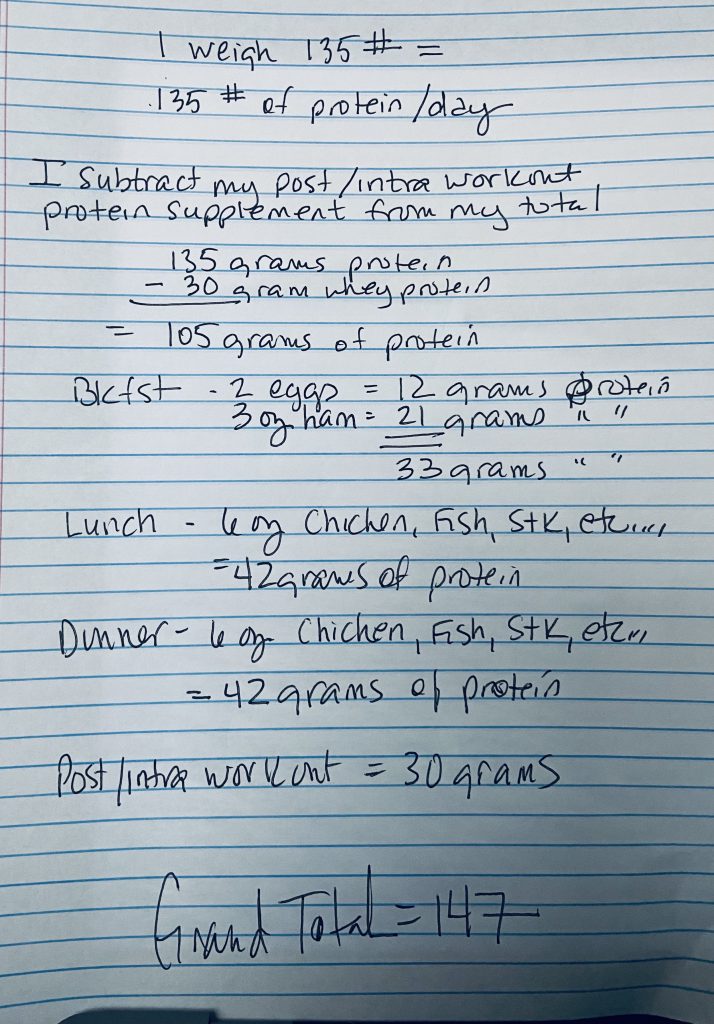 I weigh 135 # =
135 # of protein/day
I subtract my post/intra workout
protein supplement from my total
135 grams protein
- 30 gram whey protein
= 105 grams of protein
Bkfst - 2 eggs = 12 grams protein
3 oz ham = 21 grams " "
33 grams " "
Lunch - 6 oz Chicken, Fish, Stk, etc....
=42 grams of protein
Dinner - 6 oz Chicken, Fish, Stk, etc...
= 42 grams of protein
Post/intra workout = 30 grams
Grand Total = 147